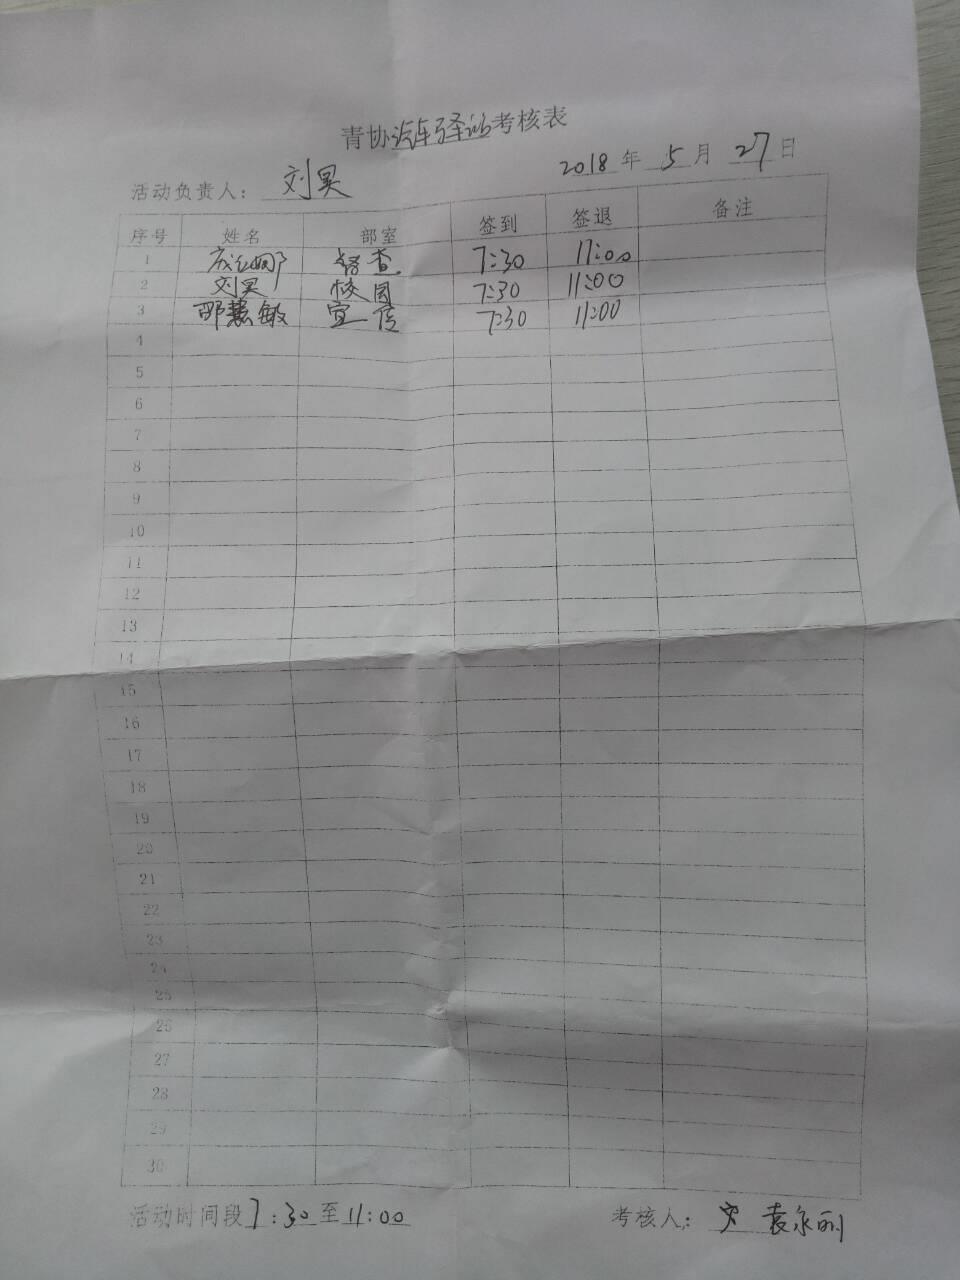 青协汽车驿站考核表
活动负责人: 刘昊 2018 年 5 月 27 日
序号 姓名 部室 签到 签退 备注
1 督查 7:30 11:00
2 刘昊 校园 7:30 11:00
3 邢慧敏 宣传 7:30 11:00
4
5
6
7
8
9
10
11
12
13
14
15
16
17
18
19
20
21
22
23
24
25
26
27
28
29
30
活动时间段 7:30 至 11:00 考核人: 袁永丽